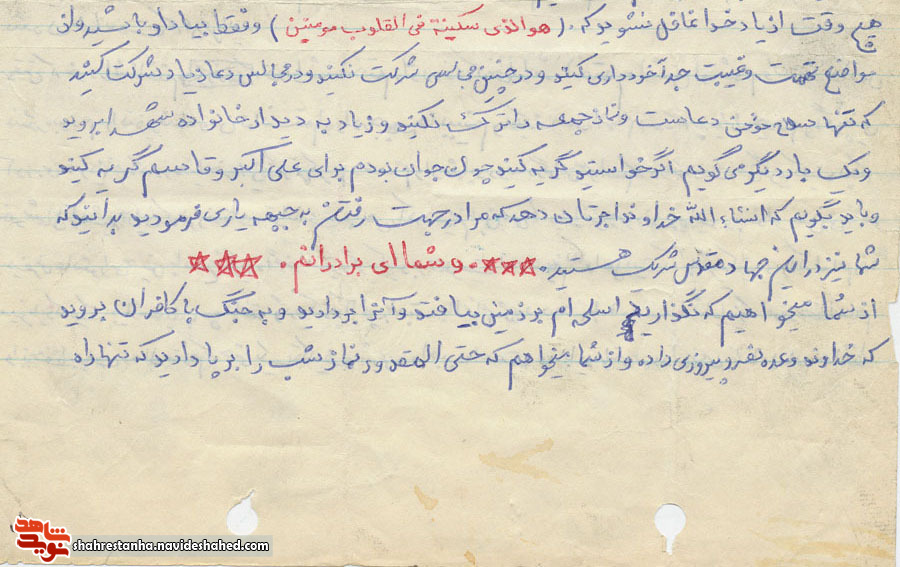 هیچ وقت از یاد خدا غافل نشوید که. (هو الذی سکینة فی القلوب مومنین) و فقط بیاد او باشید و از
مواضع تهمت و غیبت جداً خودداری کنید و در چنین مجالسی شرکت نکنید و در مجالس دعا زیاد شرکت کنید
که تنها سلاح مومن دعاست و نماز جمعه را ترک نکنید و زیاد به دیدار خانواده شهدا بروید
و یک بار دیگر می گویم اگر خواستید گریه کنید چون جوان بودم برای علی اکبر و قاسم گریه کنید
و باید بگویم که انشاء الله خداوند اجرتان دهد که مرا در جهت رفتنم به جبهه یاری فرمودید بدانید که
شما نیز در این جهاد مقدس شریک هستید. ٭٭٭. و شما ای برادرانم. ٭٭٭
از شما میخواهیم که نگذارید اسلحه ام بر زمین بیافتد و آنرا بردارید و به جنگ با کافران بروید
که خداوند وعده نصر و پیروزی داده و از شما میخواهم که حتی المقدور نماز شب را برپا دارید که تنها راه
شاهد
نوید
shahrestanha.navideshahed.com